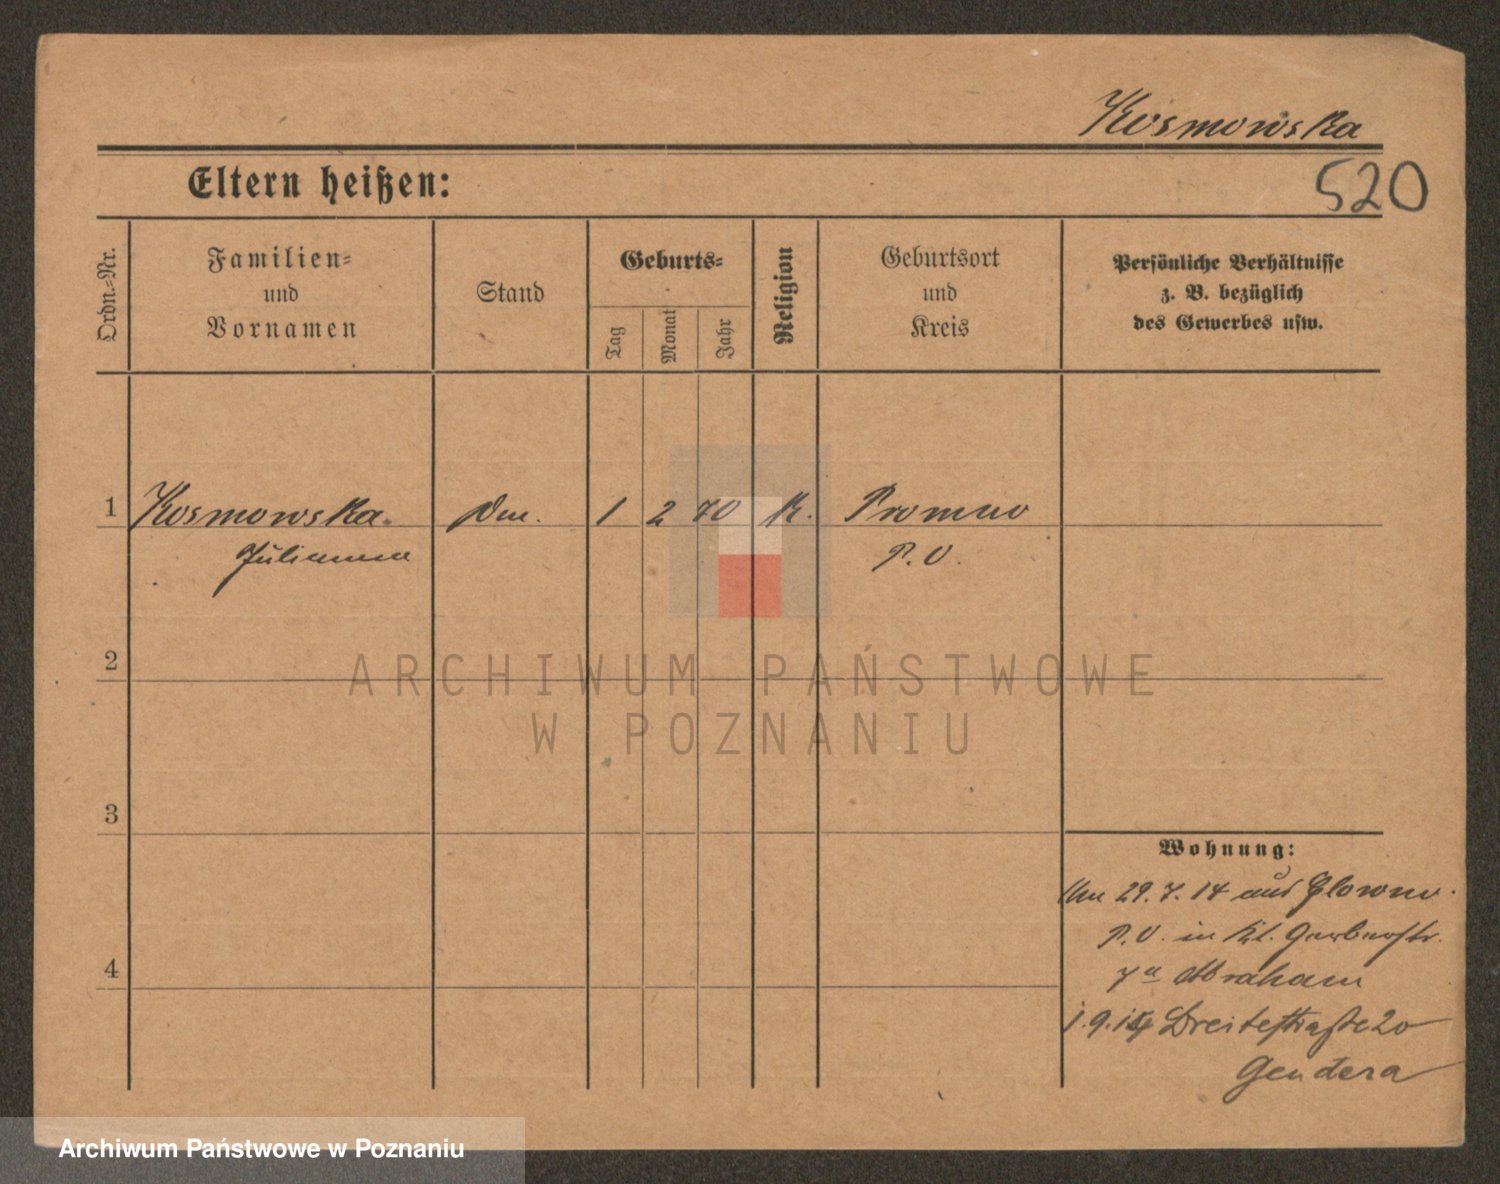 Kosmowska
520
Eltern heißen:
Ordn.-Nr.
Familien-
und
Vornamen
Stand
Geburts-
Tag
Monat
Jahr
Religion
Geburtsort
und
Kreis
Persönliche Verhältnisse
z. B. bezüglich
des Gewerbes usw.
1 Kosmowska 1 2 70 K. Promno
Julianna P. O.
2
ARCHIWUM PAŃSTWOWE
W POZNANIU
3
Wohnung:
29. 7. 14 aus Glowno
P. O. in Kl. Gerberstr.
4
7a Abraham
1.9.14 Breitestraße 20
Gendera
Archiwum Państwowe w Poznaniu